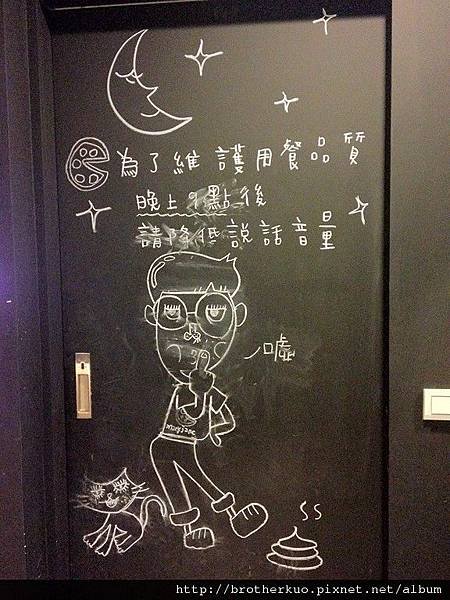 為了維護用餐品質
晚上9點後
請降低說話音量
噓
mary jane
http://brotherkuo.pixnet.net/album